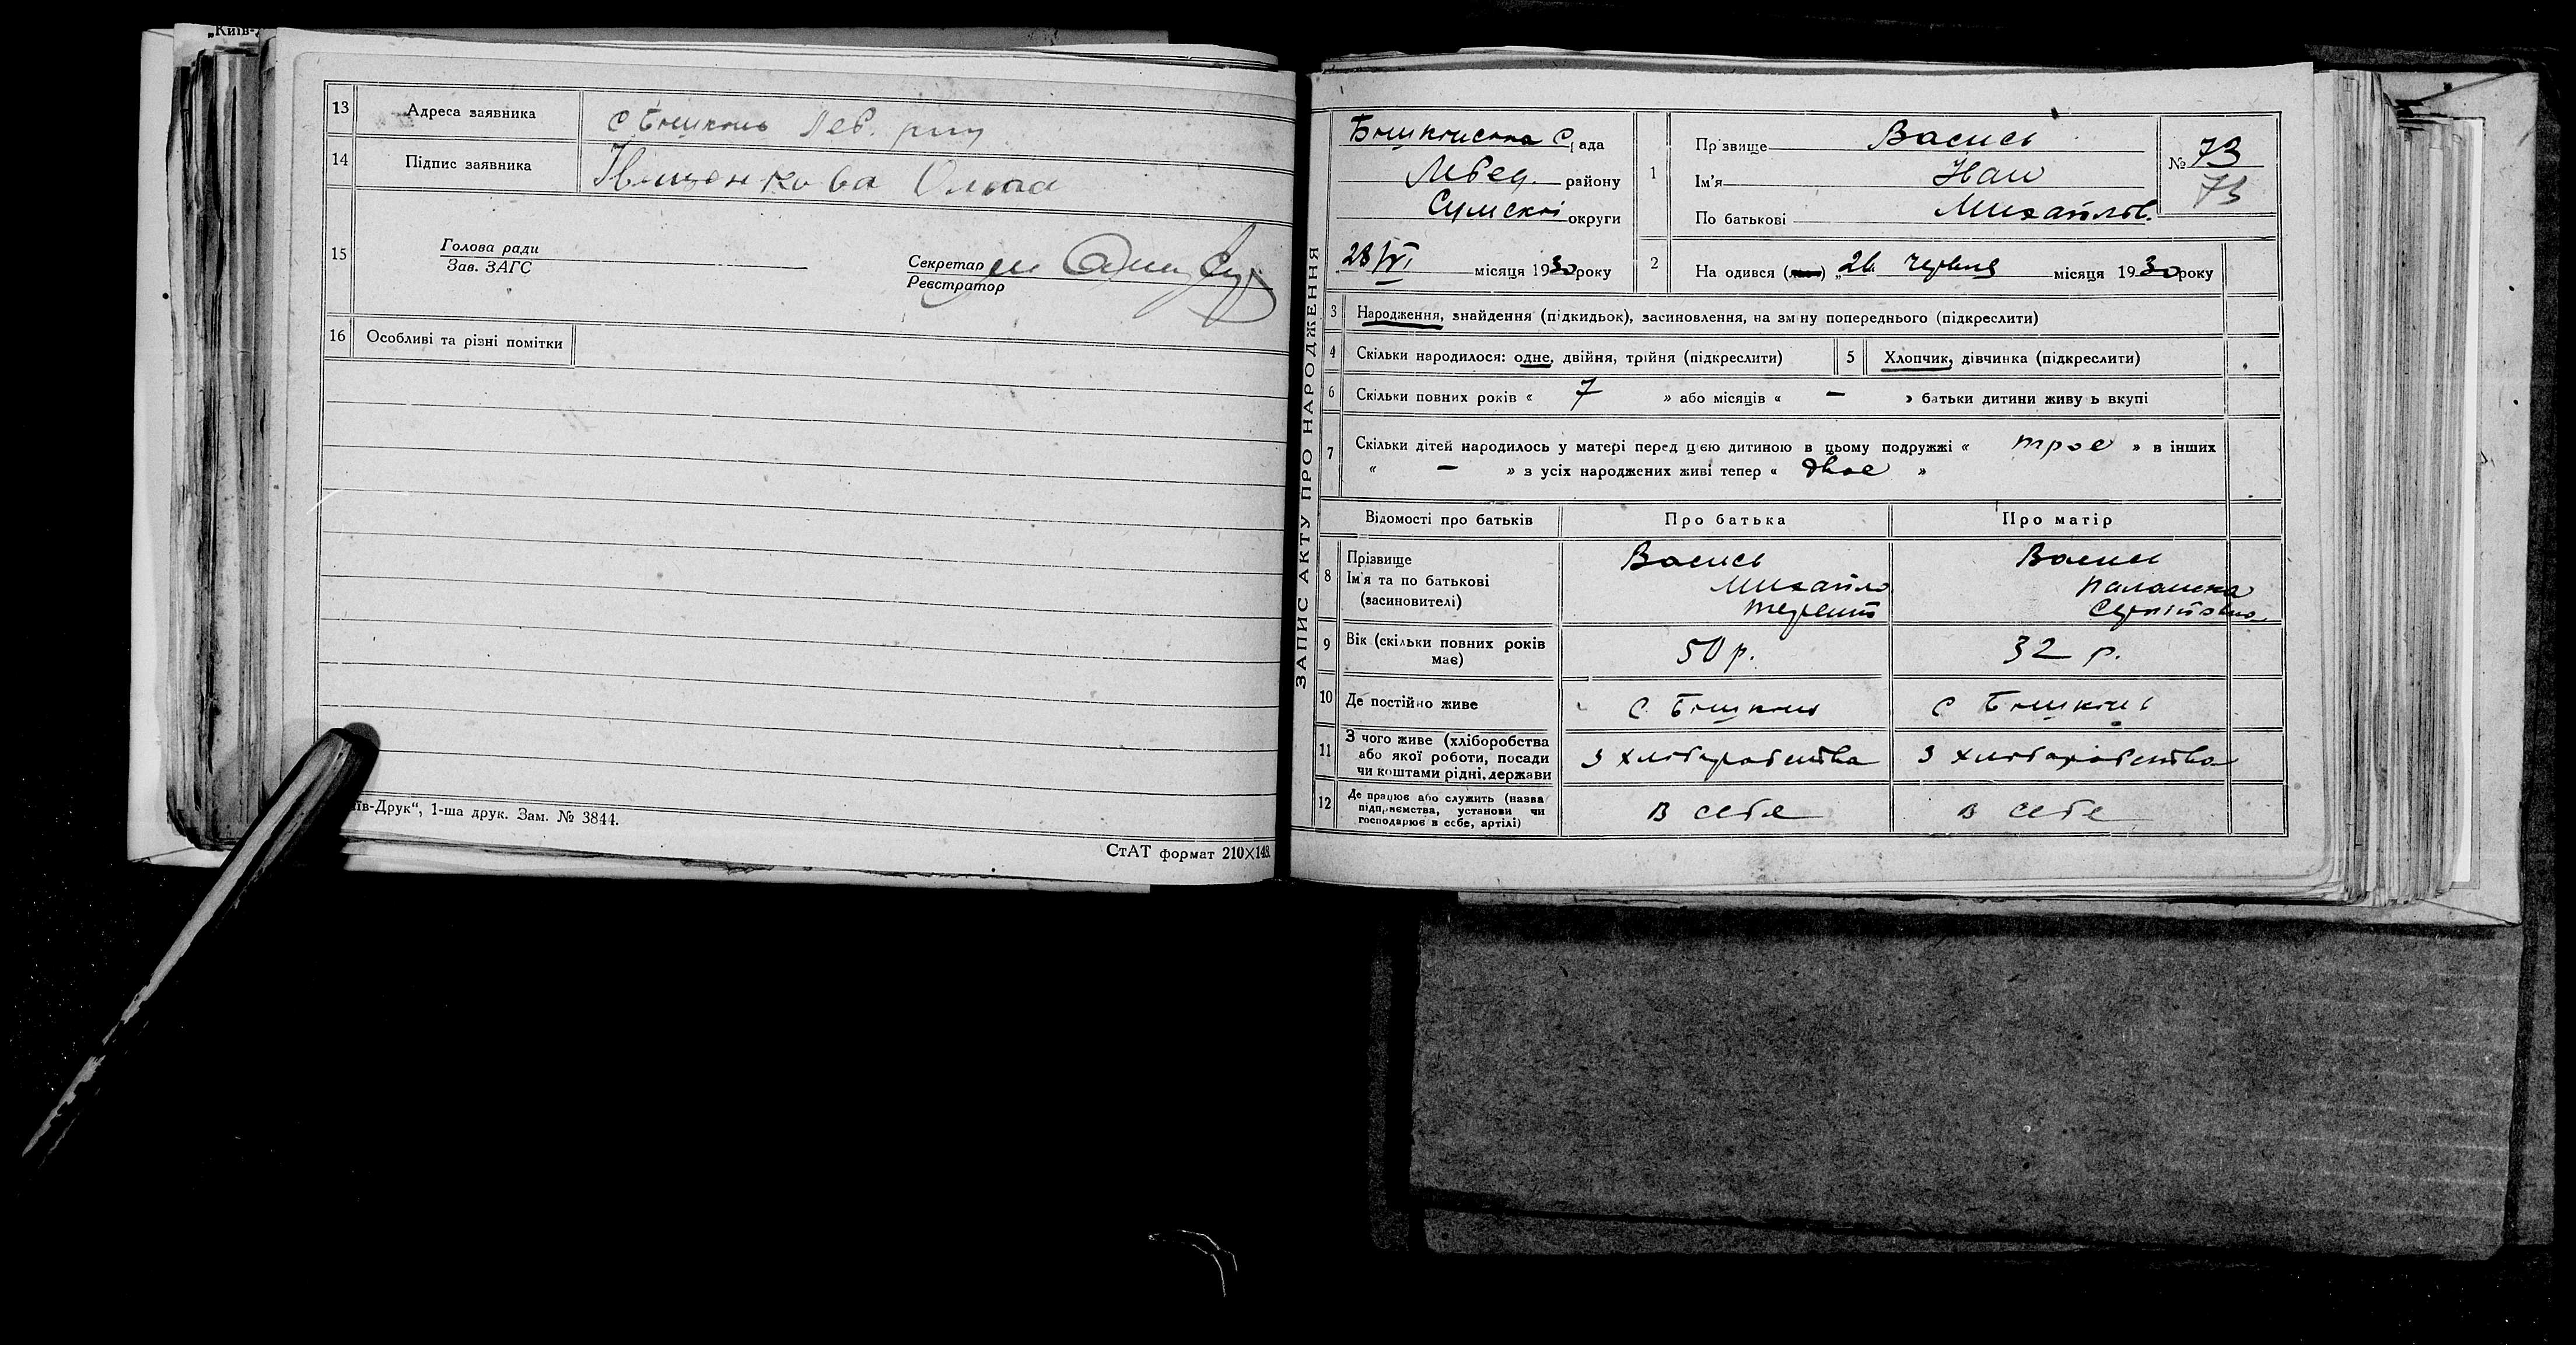 „Київ-
13 Адреса заявника с Бишкінь Леб. р-ну
14 Підпис заявника Іващенкова Ольга
15 Голова ради
Зав. ЗАГС
Секретар
Реєстратор
16 Особливі та різні помітки
їв-Друк“, 1-ша друк. Зам. № 3844.
СтАТ формат 210×148.
ЗАПИС АКТУ ПРО НАРОДЖЕННЯ
Бишкінська С рада
Лебед. району
Сумскої округи
28/VI місяця 1930 року
1 Прізвище Васись
Ім'я Иван
По батькові Михайлов.
№ 73
73
2 На одився () „26 червня місяця 1930 року
3 Народження, знайдення (підкидьок), засиновлення, на зміну попереднього (підкреслити)
4 Скільки народилося: одне, двійня, трійня (підкреслити)
5 Хлопчик, дівчинка (підкреслити)
6 Скільки повних років « 7 » або місяців « — » батьки дитини живу ь вкупі
7 Скільки дітей народилось у матері перед цією дитиною в цьому подружжі « трое » в інших
« — » з усіх народжених живі тепер « двое »
Відомості про батьків Про батька Про матір
8 Прізвище
Ім'я та по батькові
(засиновителі)
Васись
Михайло
Терент
Васись
Палашка
Сергіївна
9 Вік (скільки повних років
має)
50 р. 32 р.
10 Де постійно живе с Бишкінь с Бишкінь
11 З чого живе (хліборобства
або якої роботи, посади
чи коштами рідні, держави
з хліборобства з хліборобства
12 Де працює або служить (назва
підприємства, установи чи
господарює в себе, артілі)
в себе в себе